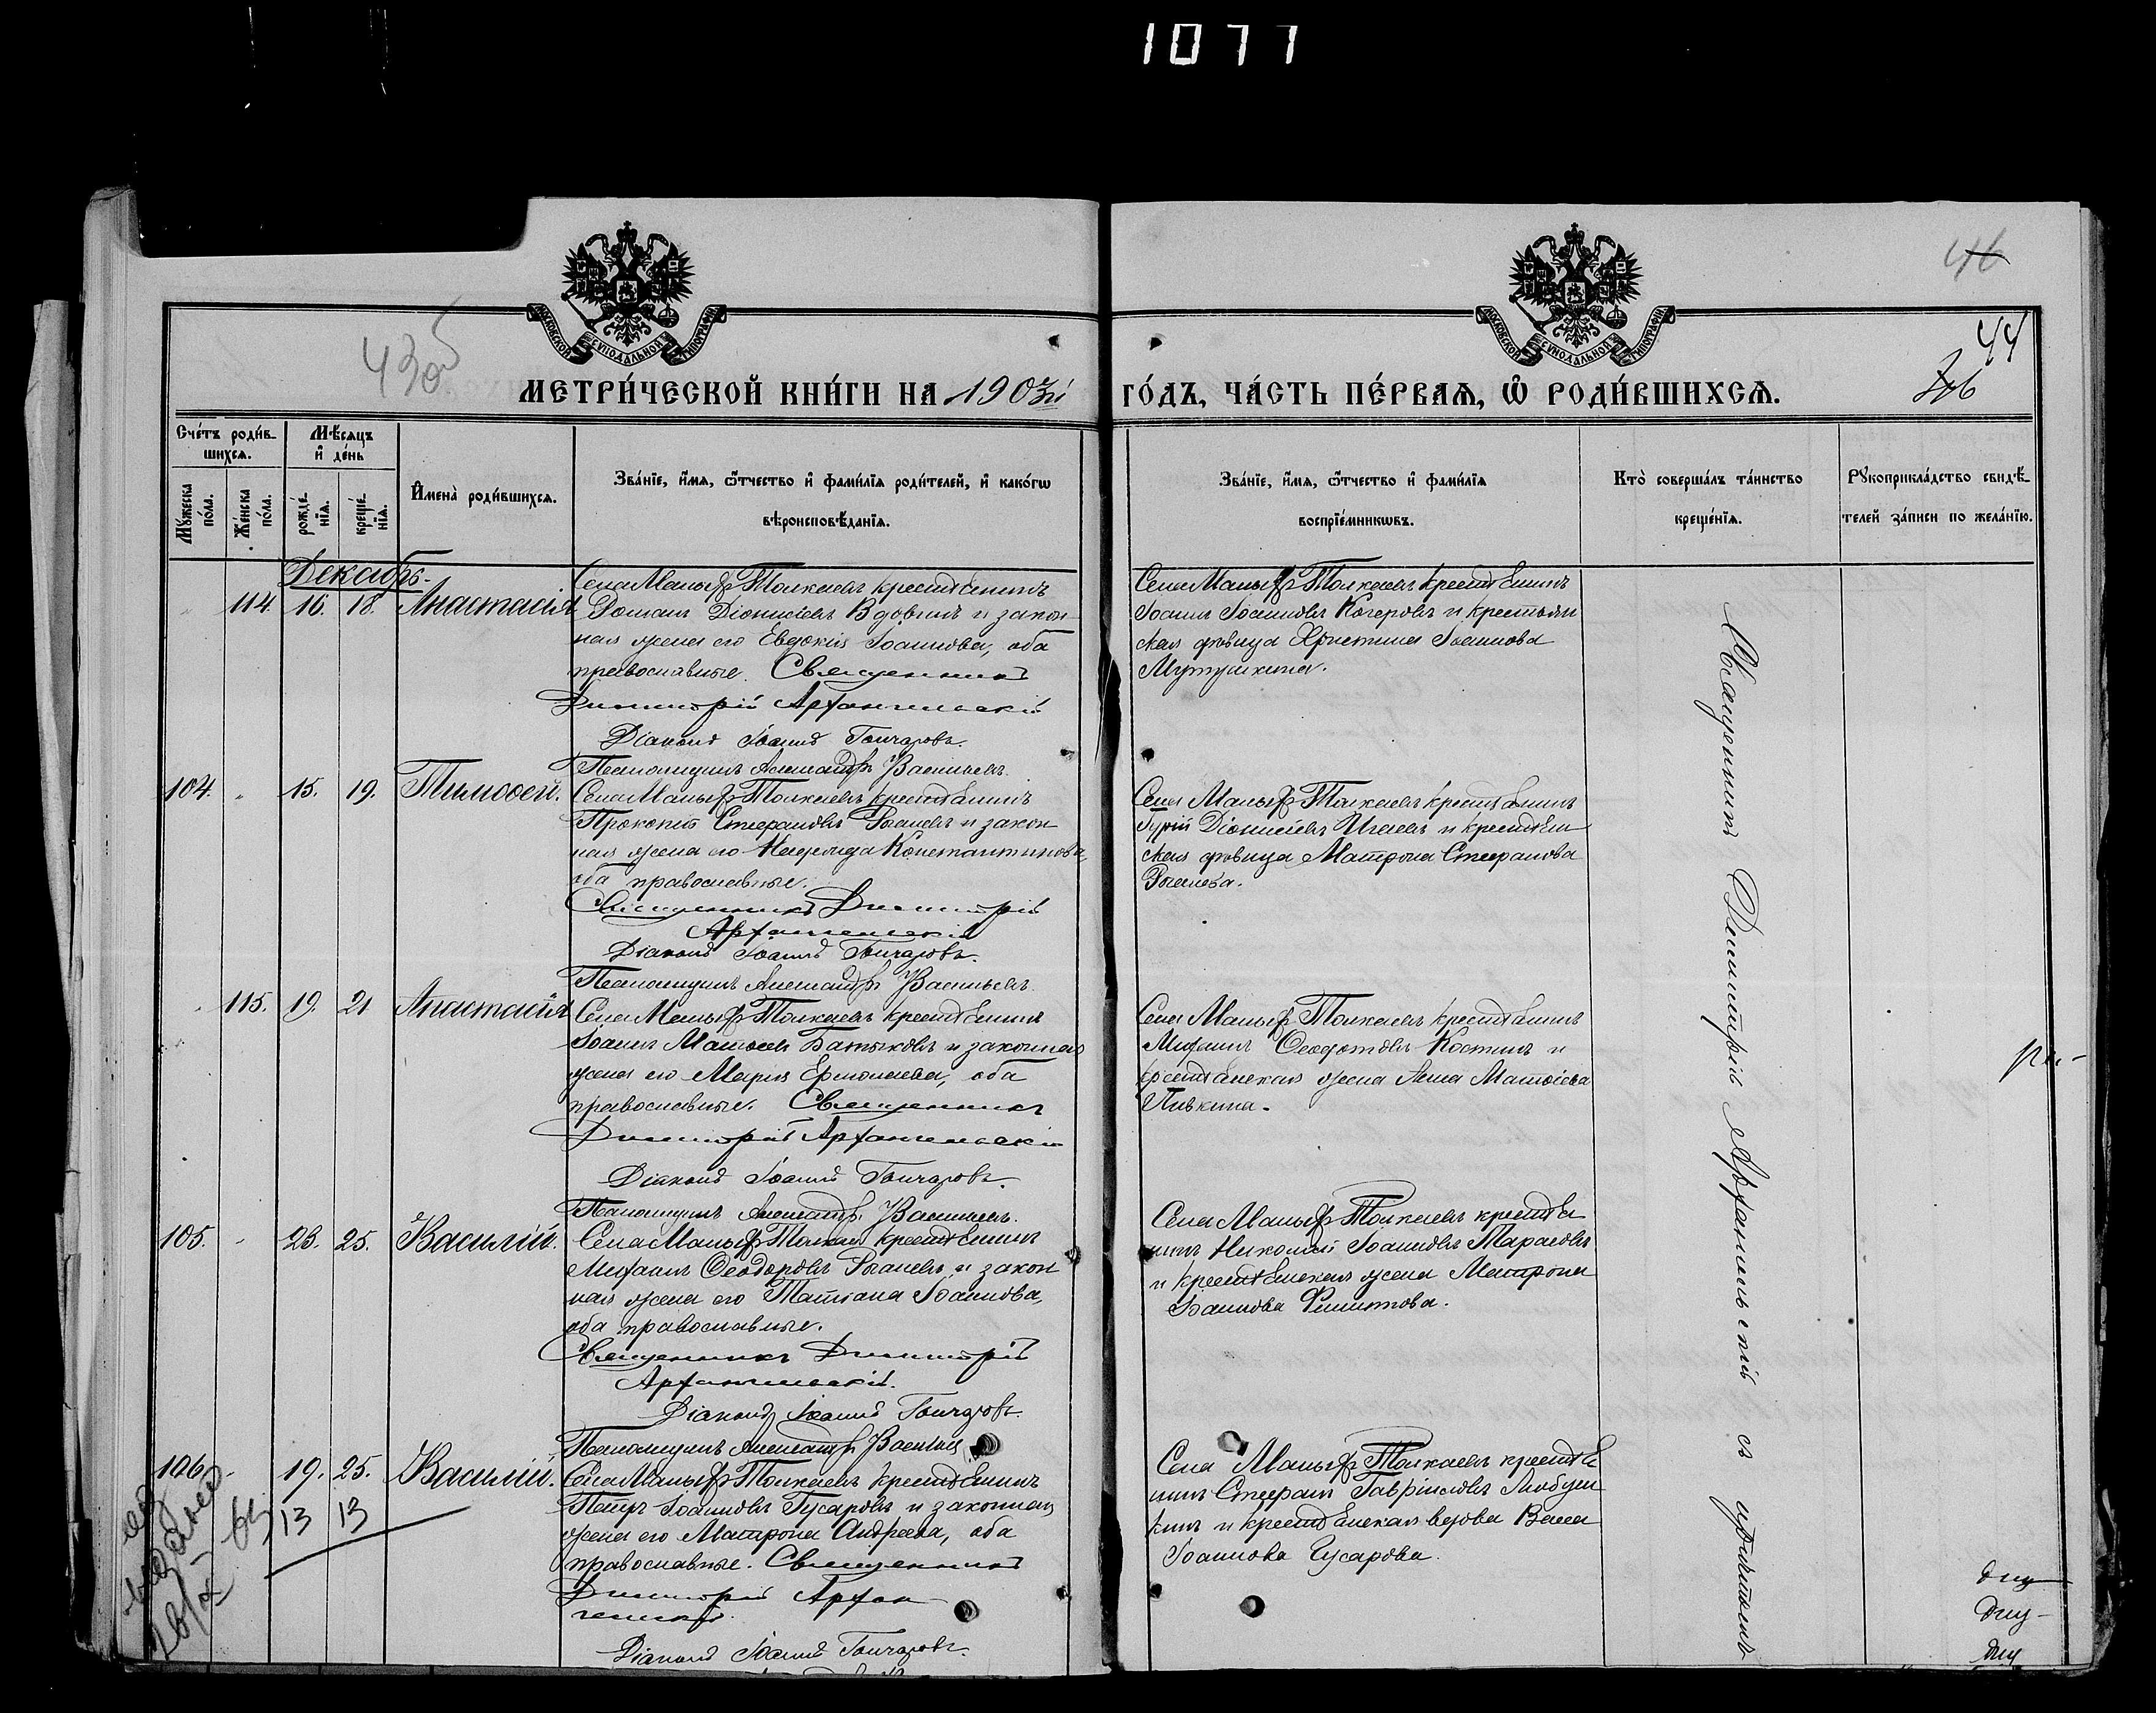 1077
МОСКОВСКОЙ СѴНОДАЛЬНОЙ ТИПОГРАФІИ
МОСКОВСКОЙ СѴНОДАЛЬНОЙ ТИПОГРАФІИ
43об
46
44
МЕТРИ́ЧЕСКОЙ КНИ́ГИ НА 1903й
ГО́ДЪ, ЧА́СТЬ ПЕ́РВАѦ, Ѽ РОДИ́ВШИХСѦ.
Сче́тъ роди́в-
шихсѧ.
Мѣ́сѧцъ
и҆ де́нь
Мꙋ́жеска по́ла.
Же́нска по́ла.
рожде́нїѧ.
креще́нїѧ.
И҆мена̀ роди́вшихсѧ.
Зва́нїе, и҆́мѧ, ѻ҆́тчество и҆ фами́лїѧ роди́телей, и҆ како́гѡ
вѣроисповѣ́данїѧ.
Зва́нїе, и҆́мѧ, ѻ҆́тчество и҆ фами́лїѧ
воспрїе́мникѡвъ.
Кто̀ соверша́лъ та́инство
креще́нїѧ.
Рꙋкоприкла́дство свидѣ́-
телей за́писи по жела́нїю.
Декабрь.
114. 16. 18. Анастасія
Села Малыхъ Толкаевъ крестьянинъ
Романъ Діонисіевъ Вдовинъ и закон
ная жена его Евдокія Іоаннова, оба
православные. Священникъ
Димитрій Архангельскій
Діаконъ Іоаннъ Гончаровъ.
Псаломщикъ Александръ Васильевъ.
Села Малыхъ Толкаевъ крестьянинъ
Іоаннъ Іоанновъ Кочеровъ и крестьян
ская дѣвица Христина Іоаннова
104. 15. 19. Тимоѳей.
Села Малыхъ Толкаевъ крестьянинъ
Прокопій Стефановъ и закон
ная жена его Надежда Константинова,
оба православные.
Священникъ Димитрій
Архангельскій
Діаконъ Іоаннъ Гончаровъ.
Псаломщикъ Александръ Васильевъ.
Села Малыхъ Толкаевъ крестьянинъ
Гурій Діонисіевъ и крестьян
ская дѣвица Матрона Стефанова
115. 19. 21 Анастасія
Села Малыхъ Толкаевъ крестьянинъ
Іоаннъ Матѳіевъ Батяковъ и законная
жена его Марія Ермолаева, оба
православные. Священникъ
Димитрій Архангельскій
Діаконъ Іоаннъ Гончаровъ.
Псаломщикъ Александръ Васильевъ.
Села Малыхъ Толкаевъ крестьянинъ
Михаилъ Ѳеодотовъ Костинъ и
крестьянская жена Анна Матѳіева
Пивкина.
105. 23. 25. Василій.
Села Малыхъ Толкаевъ крестьянинъ
Михаилъ Ѳеодоровъ и закон
ная жена его Татіана Іоаннова,
оба православные.
Священникъ Димитрій
Архангельскій.
Діаконъ Іоаннъ Гончаровъ.
Псаломщикъ Александръ Васильевъ
Села Малыхъ Толкаевъ крестья
нинъ Николай Іоанновъ Тарасовъ
и крестьянская жена Матрона
Іоаннова Филиппова.
106. 19. 25. Василій.
13 13
Села Малыхъ Толкаевъ крестьянинъ
Петръ Іоанновъ Гусаровъ и законная
жена его Матрона Андреева, оба
православные. Священникъ
Димитрій Архан
гельскій.
Діаконъ Іоаннъ Гончаровъ.
Села Малыхъ Толкаевъ крестья
нинъ Стефанъ Гавріиловъ
кинъ и крестьянская вдова
Іоаннова Гусарова.
Священникъ Димитрій Архангельскій съ причтомъ